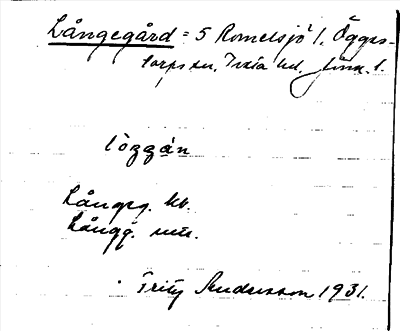 Långegård = 5 Romelsjö 1. Öggs-
torps sn, Tveta hd. Jönk. l.
lòggá̱n
Långeg. kb.
Långg. mtl.
Fritz Andersson 1931.